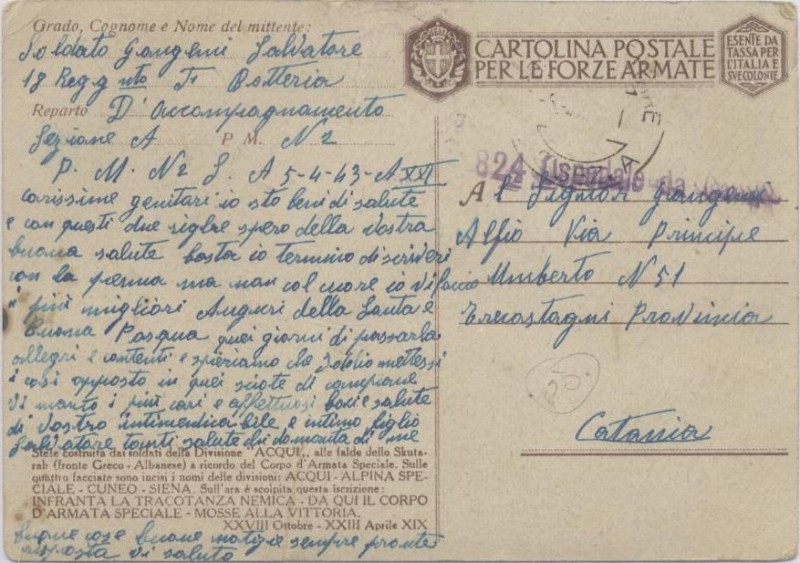 Grado, Cognome e Nome del mittente:
Soldato Gangemi Salvatore
18 Regg nto F Batteria
Reparto D'Accompagnamento
Sezione A P. M. N 2
P. M. N 2 S. A 5-4-43-A XXI
carissime genitari io sto beni di salute
e con questi due sighe spero della vostra
buona salute basta io termino di scriveri
con la penna ma non col cuore io vi faccio
i piu migliori Auguri della Santa e
buona Pasqua quei giorni di passarla
allegri e contenti e speriamo che Iddio mettessi
i così apposto in quei di campane
Vi manto i più cari e affettuosi baci e salute
di Vostro intimendicabile e intimo figlio
Salvatore tanti salute di di me
Stele costruita dai soldati della Divisione "ACQUI", alle falde dello Skuta-
rab (fronte Greco - Albanese) a ricordo del Corpo d'Armata Speciale. Sulle
quattro facciate sono incisi i nomi delle divisioni: ACQUI - ALPINA SPE-
CIALE - CUNEO - SIENA. Sull'ara è scolpita questa iscrizione:
INFRANTA LA TRACOTANZA NEMICA - DA QUI IL CORPO
D'ARMATA SPECIALE - MOSSE ALLA VITTORIA.
XXVIII Ottobre - XXIII Aprile XIX
buone cose buone notizie sempre pronte
risposta vi saluto
CARTOLINA POSTALE
PER LE FORZE ARMATE
ESENTE DA
TASSA PER
L'ITALIA E
SVE COLONIE
824
Al Signor Gangemi
Alfio Via Principe
Umberto N 51
Trecastagni Provincia
25.
Catania